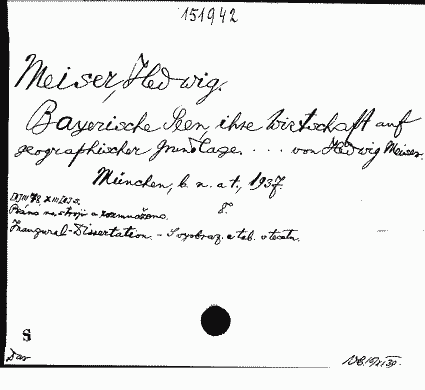 151942
Meiser, Hedwig.
Bayerische Seen, ihre Wirtschaft auf
geographischer Grundlage. ... von Hedwig Meiser.
München, b. n. a t., 1937.
8°.
Psáno na stroji a rozmnoženo.
Inaugural-Dissertation. - S vyobraz. a tab. v textu.
S
Dar